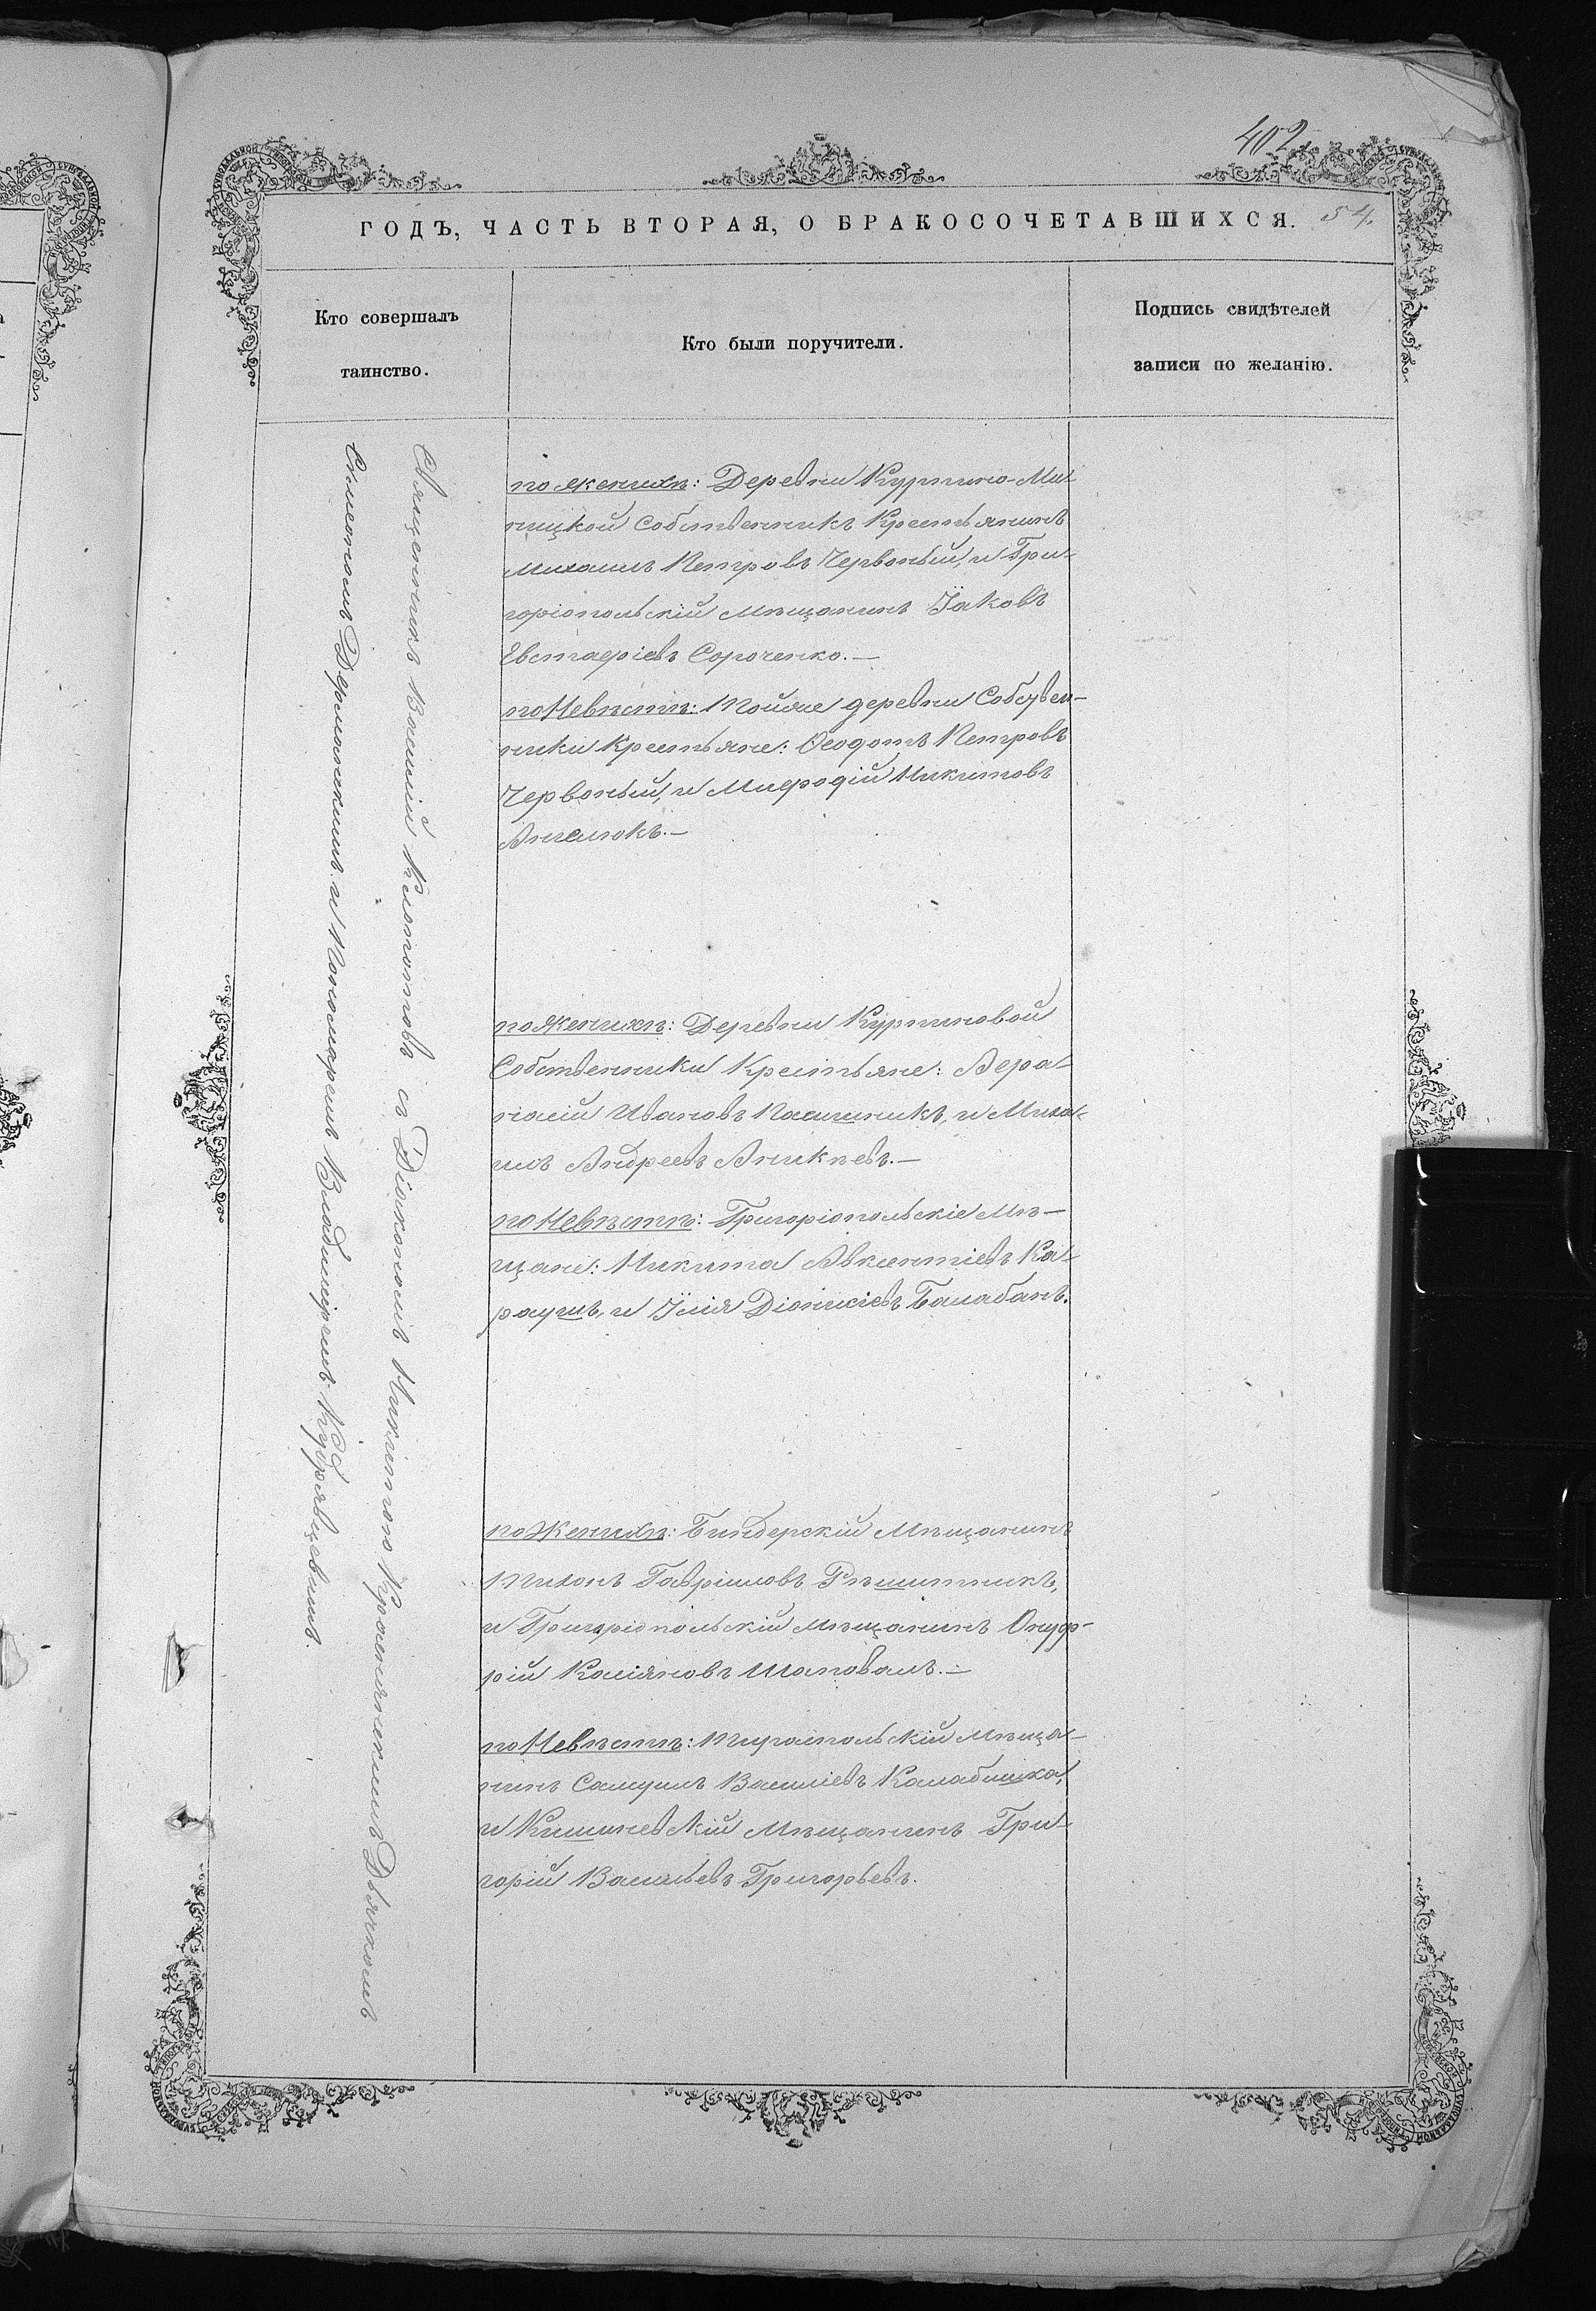 402
ГОДЪ, ЧАСТЬ ВТОРАЯ, О БРАКОСОЧЕТАВШИХСЯ.
54.
Кто совершалъ
таинство.
Кто были поручители.
Подпись свидѣтелей
записи по желанію.
Священникъ Василій Клопотовъ съ Діакономъ Никитою Крыжановскимъ Дьячкомъ
Симеономъ Держанскимъ и Пономаремъ Владиміромъ Кудрявцевымъ.
по женихѣ: Деревни
Собственникъ Крестьянинъ
Михаилъ Петровъ Червоный, и Гри-
горіопольскій Мѣщанинъ Іаковъ
Евстафіевъ Сороченко.—
по Невѣстѣ: Тойже деревни Собствен-
ники Крестьяне: Ѳеодотъ Петровъ
Червоный, и Миѳодій Никитовъ
по Женихѣ: Деревни
Собственники Крестьяне: Аѳа-
насій Ивановъ Пасишникъ, и Миха-
илъ Андреевъ Аникѣевъ.—
по Невѣстѣ: Григоріопольскіе Мѣ-
щане: Никита Авксентіевъ Ка-
раушъ, и Илія Діонисіевъ Балабанъ.
по Женихѣ: Бендерскій Мѣщанинъ
Тихонъ Гавріиловъ Рѣшитникъ,
и Григоріопольскій мѣщанинъ Онуф-
рій Касіяновъ Шаповалъ.—
по Невѣстѣ: Тираспольскій Мѣща-
нинъ Самуилъ Василіевъ Калабишка,
и Кишиневскій Мѣщанинъ Гри-
горій Васильевъ Григорьевъ.